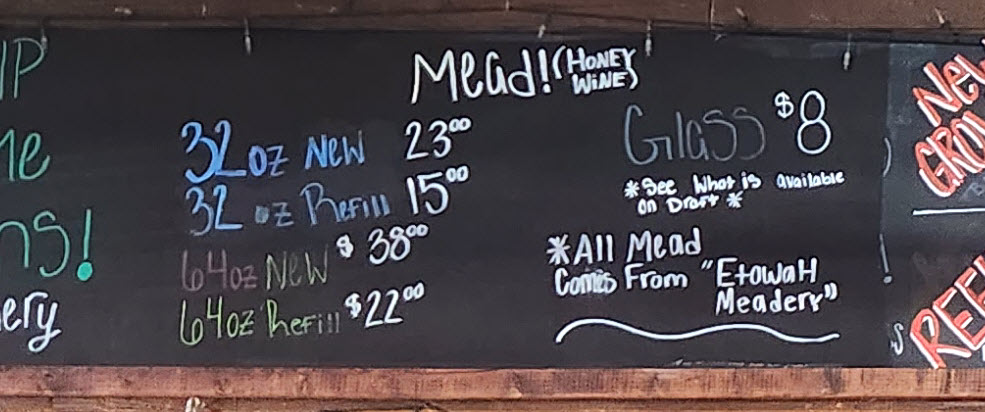 Mead! (HONEY WINE)
32oz New 23⁰⁰
32 oz Refill 15⁰⁰
64oz New $38⁰⁰
64oz Refill $22⁰⁰
Glass $8
*See What is available
on Draft *
*All Mead
Comes From "EtowaH
Meadery"